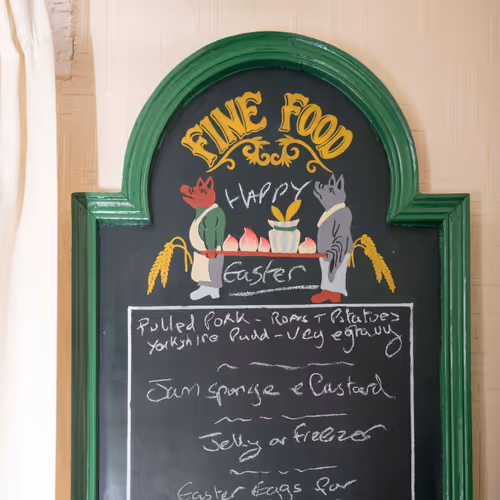 FINE FOOD
HAPPY
Easter
Pulled Pork - Roast Potatoes
Yorkshire Pudd - Veg & gravy
Jam sponge & Custard
Jelly or freezer
Easter Eggs for